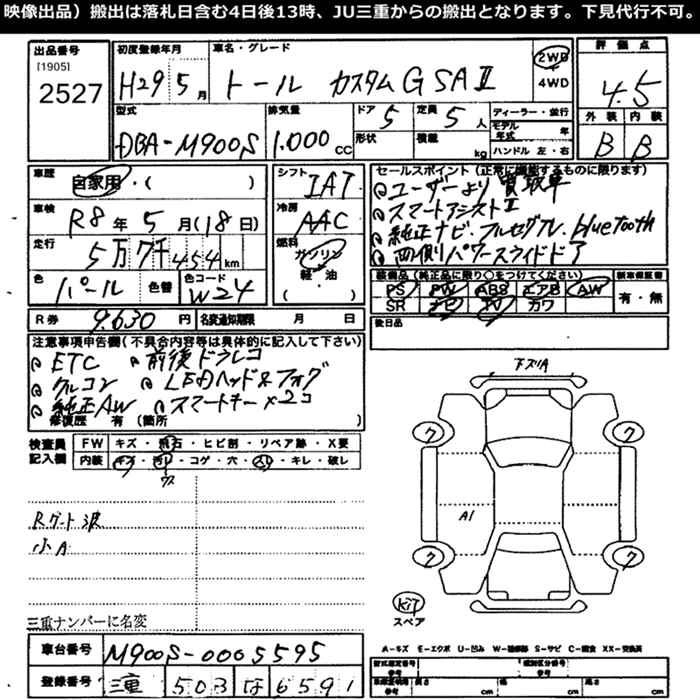 映像出品）搬出は落札日含む4日後13時、JU三重からの搬出となります。下見代行不可。
出品番号
[1905]
2527
初度登録年月
H29 5月
車名・グレード
トール カスタムG SAⅡ
2WD
4WD
評価点
4.5
型式
DBA-M900S
排気量
1.000cc
ドア
5
形状
定員
5人
積載
kg
ディーラー・並行
モデル年式 年
ハンドル 左・右
外装 内装
B B
車歴
自家用・( )
車検
R8年5月(18日)
走行
5万7千454km
色
パール
色替
色コード
W24
シフト
IAT
冷房
AAC
燃料
ガソリン
軽・油
( )
セールスポイント（正常に機能するものに限ります）
ユーザーより買取車
スマートアシストⅡ
純正ナビ.フルセグTV.bluetooth
両側パワースライドドア
装備品（純正品に限り○をつけてください）
PS PW ABS エアB AW
SR ナビ TV カワ
新車保証書
有・無
後日品
R券
9.630円
名変通知期限 月 日
注意事項申告欄（不具合内容等は具体的に記入して下さい）
ETC 前後ドラレコ
クルコン LEDヘッド&フォグ
純正AW スマートキー×2コ
修復歴 有（箇所 ）
検査員記入欄
FW キズ・飛石・ヒビ割・リペア跡・X要
内装 キズ・汚レ・コゲ・穴・スレ・キレ・破レ
ウス
Rゲート波
小A
三重ナンバーに名変
車台番号
M900S-0005595
登録番号
三重 503 は 6591
下スリA
ワ ワ
A1
ワ ワ
kit
スペア
A-キズ E-エクボ U-凹み W-補修跡 S-サビ C-腐食 XX-交換済
型式指定番号
参考
類別区分番号
参考
長さ cm
幅 cm
高さ cm